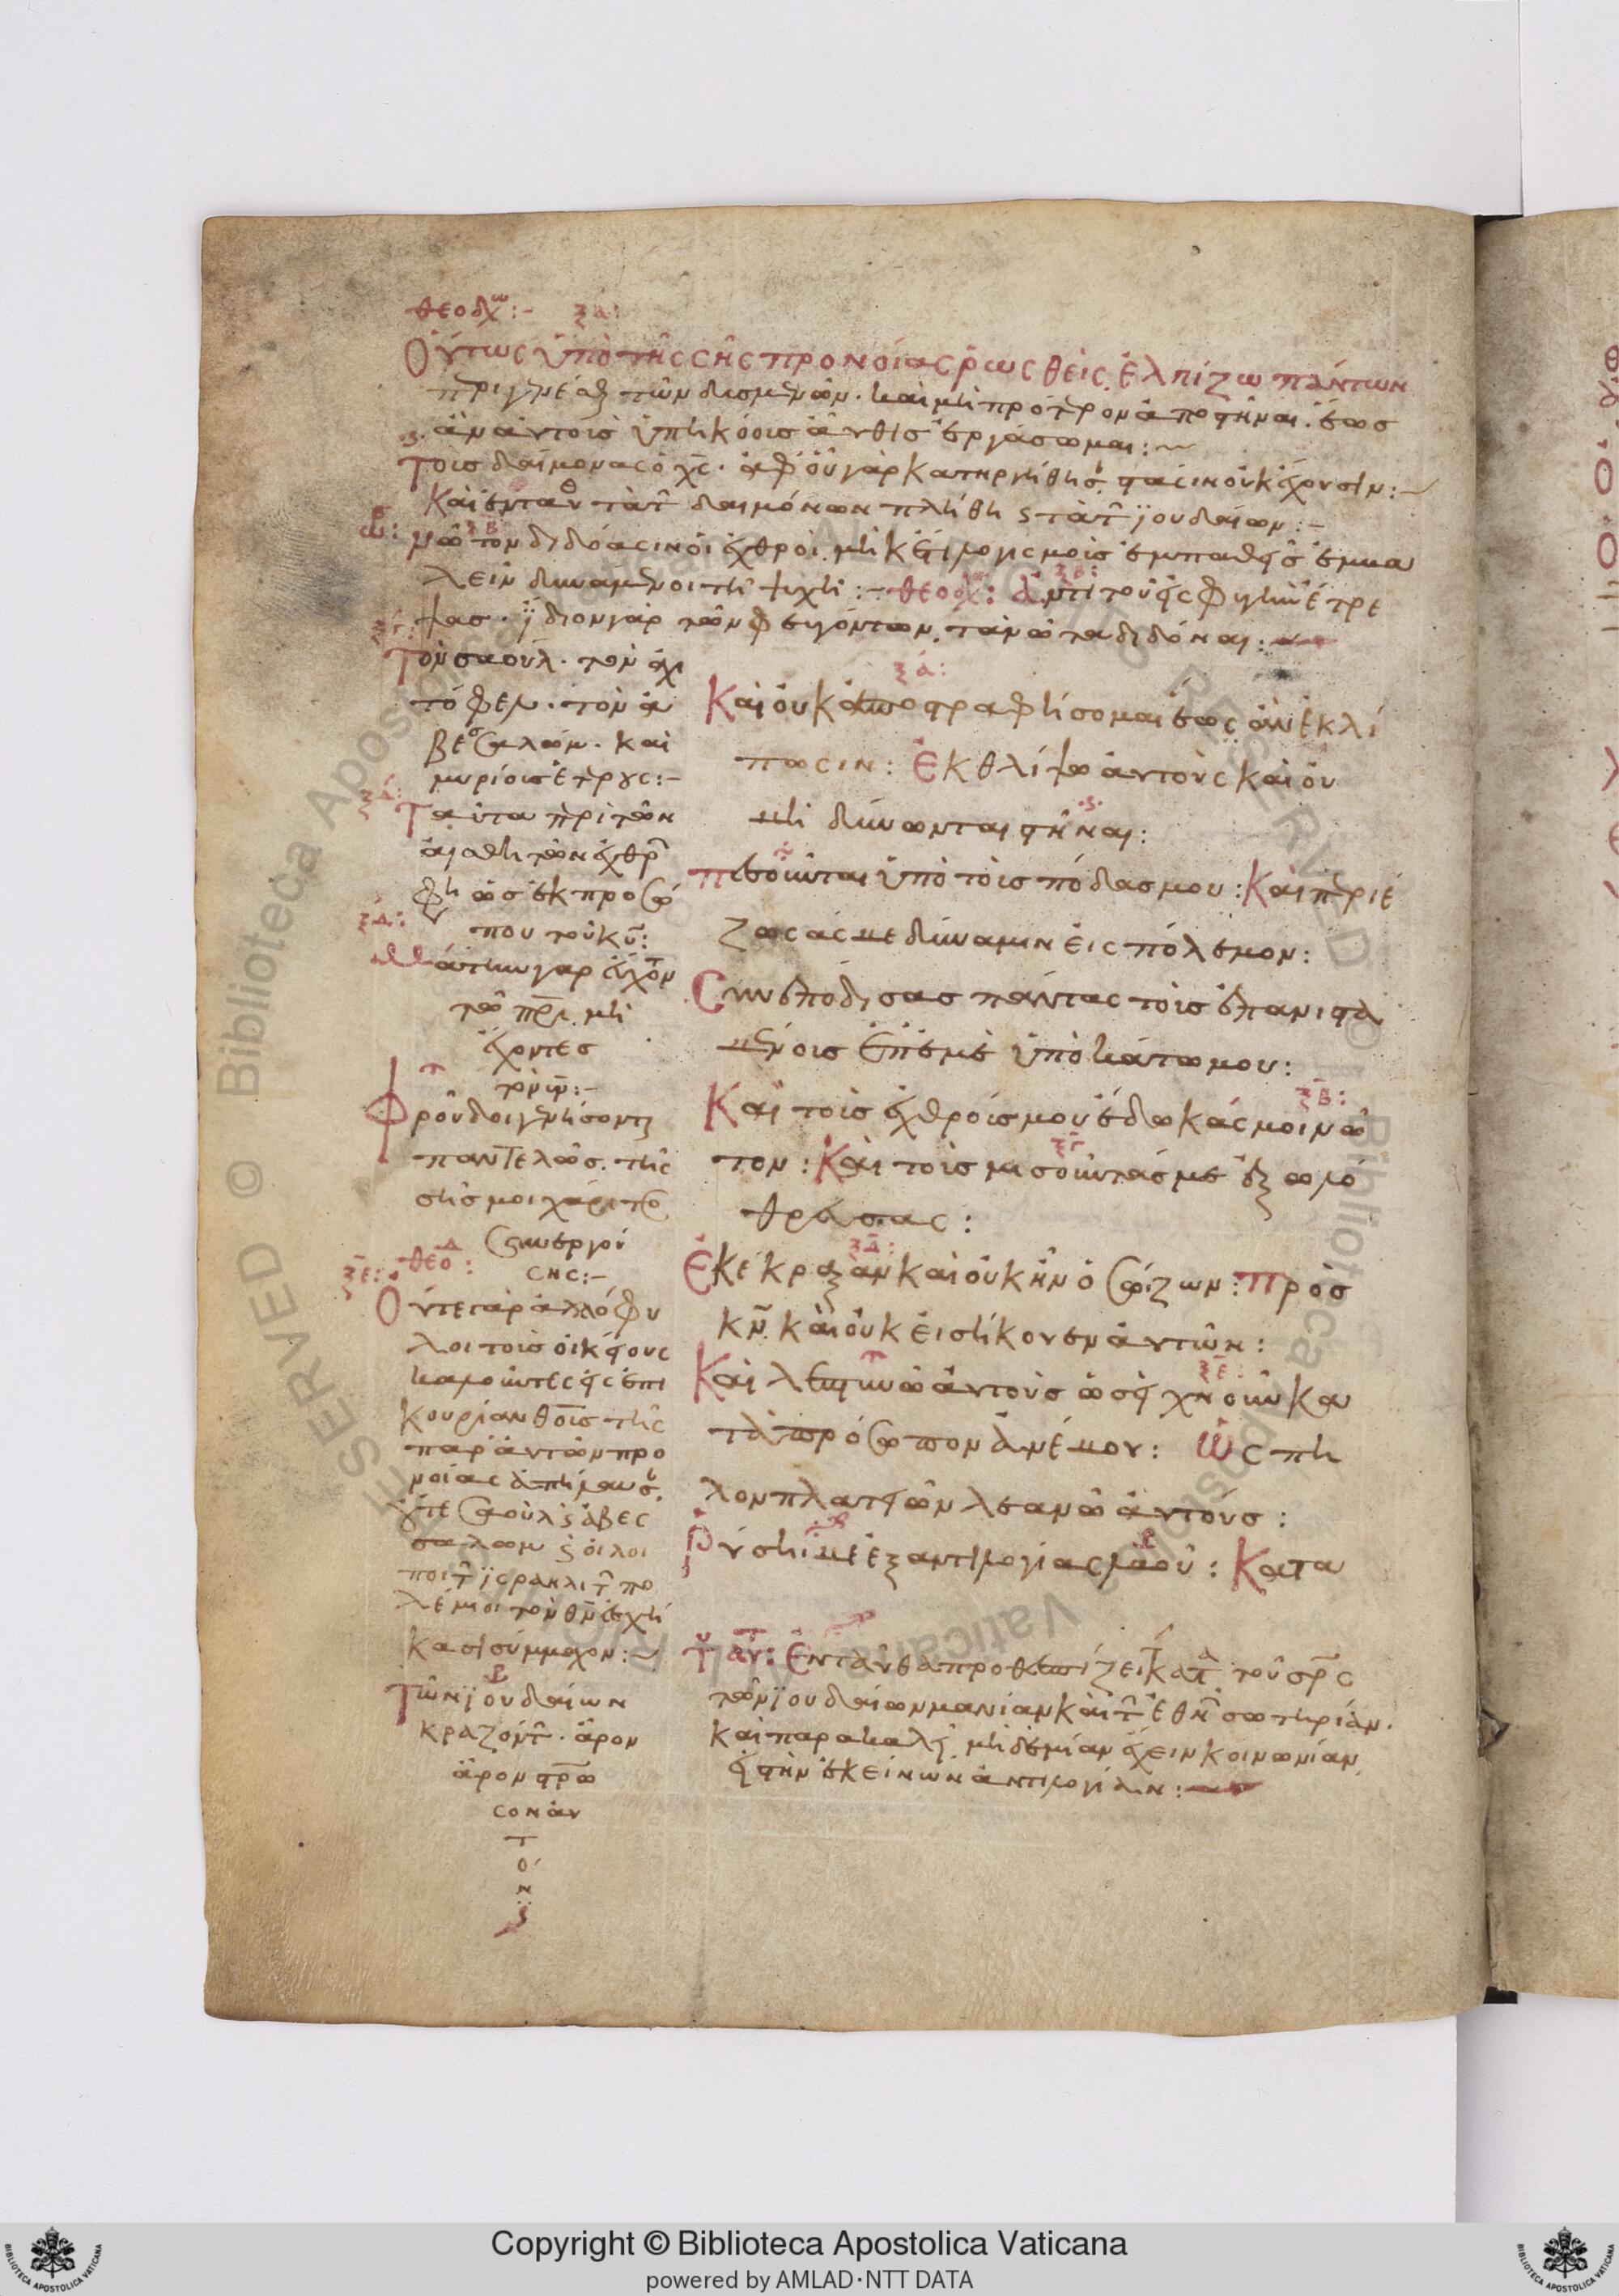 θεοδχω:- ξα:
Οὕτως ὑπὸ τῆς σῆς προνοίας ῥωσθεὶς ἐλπίζω πάντων
περιγενέσθαι τῶν δυσμενῶν. καὶ μὴ πρότερον ἀποστῆναι. ἕως
ἂν αὐτοὺς ὑπηκόους ἐργάσωμαι:
Τοὺς δαίμονας ὁ χς. ἀφ' οὗ γὰρ κατηργήθησαν στάσιν οὐκ ἔχουσιν:-
καὶ ἐνταῦθα τὰ τῶν δαιμόνων πλήθη ς τὰ τῶν ϊουδαίων:-
ξβ νῶτον διδόασιν οἱ ἐχθροὶ μηκέτι λογισμοὺς ἐμπαθεῖς ἐμβα
λεῖν δυνάμενοι τῇ ψυχῇ:- θεοδχ: ξβ: ἀντὶ τοῦ εἰς φυγὴν ἔτρε
ψας. ἴδιον γὰρ τῶν φευγόντων, τὰ νῶτα διδόναι:
ξγ: Τὸν σαουλ. τὸν ἀχι
τόφελ. τὸν ἀ
βεσσαλώμ. καὶ
μυρίους ἑτέρους:-
ξδ: Ταῦτα περὶ τῶν
ἀγαθῇ τῶν ἐχθρ
φη ὡς ἐκ προσώ
που τοῦ κυ:
ξδ: Μάτην γαρ εὔχοντ
τῷ πρι. μὴ
ἔχοντες
τὸν υν:-
Φροῦδοι γενήσονται
παντελῶς. τῆς
σῆς μοι χάριτο
συνεργού
σης:-
ξε: θεοδ:
Οὔτε γὰρ ἀλλόφυ
λοι τοὺς οἰκείους
καλοῦντες εἰς ἐπι
κουρίαν θεοὺς τῆς
παρ' αὐτῶν προ
νοίας ἀπήλαυσαν
οὔτε σαοὺλ ς ἀβεσ
σαλωμ ς οἱ λοι
ποὶ τ ϊσραηλιτ πο
λέμιοι τὸν θν ἐσχή
κασι σύμμαχον:
Τῶν ϊουδαίων
κραζόντ. ἆρον
ἆρον στρω
σον αὐ
τ
ό
ν
ξα:
Καὶ οὐκ ἀποστραφήσομαι ἕως ἂν ἐκλί
πωσιν: Ἐκθλίψω αὐτοὺς καὶ οὐ
μὴ δύνωνται στῆναι:
Πεσοῦνται ὑπὸ τοὺς πόδας μου: Καὶ περιέ
ζωσάς με δύναμιν εἰς πόλεμον:
Συνεπόδισας πάντας τοὺς ἐπανιστα
μένους ἐπ' ἐμὲ ὑποκάτω μου:
ξβ:
Καὶ τοὺς ἐχθρούς μου ἔδωκάς μοι νῶ
τον: Καὶ τοὺς μισοῦντάς με ἐξωλό
θρευσας:
ξδ:
Ἐκέκραξαν καὶ οὐκ ἦν ὁ σώζων: Πρὸς
κν. καὶ οὐκ εἰσήκουσεν αὐτῶν:
ξε:
Καὶ λεπτυνῶ αὐτοὺς ὡσεὶ χνοῦν κα
τὰ πρόσωπον ἀνέμου: Ὡς πη
λὸν πλατειῶν λεανῶ αὐτούς:
Ῥύσῃ με ἐξ ἀντιλογίας λαοῦ: Κατα
Ἐνταῦθα προθεσπίζει τοῦ σρς
τῶν ϊουδαίων μανίαν καὶ τ ἐθν σωτηρίαν.
καὶ παρακαλεῖ, μηδεμίαν ἔχειν κοινωνίαν
εἰς τὴν ἐκείνων ἀντιλογίαν:
Copyright © Biblioteca Apostolica Vaticana
powered by AMLAD·NTT DATA